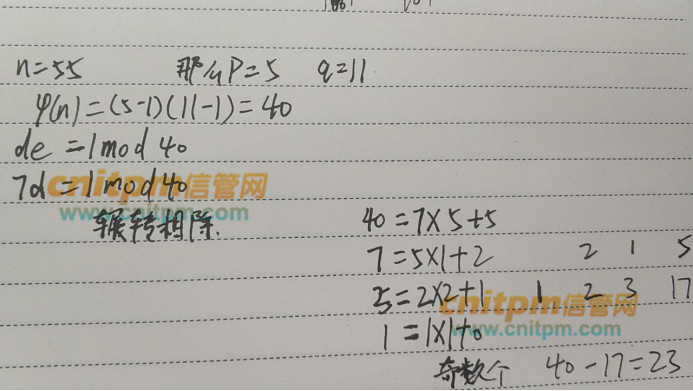 n=55 那么P=5 q=11
φ(n)=(5-1)(11-1)=40
de=1mod 40
7d=1mod40
辗转相除.
40=7×5+5
7=5×1+2 2 1 5
5=2×2+1 1 2 3 17
1=1×1+0
奇数个 40-17=23
cnitpm信管网
www.cnitpm.com
cnitpm信管网
www.cnitpm.com